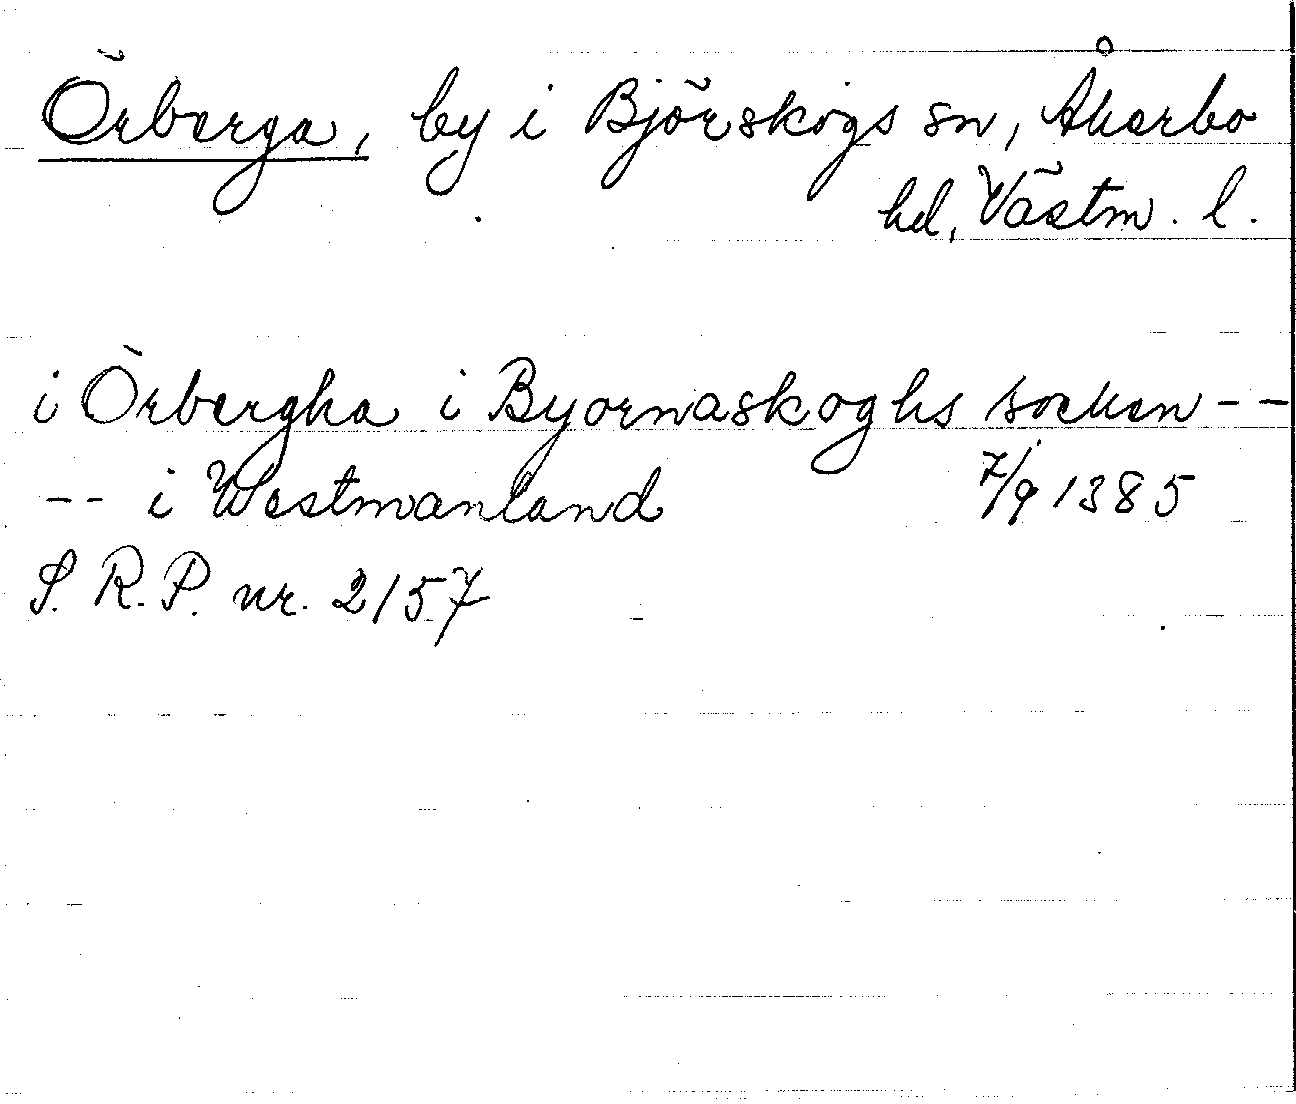 Örberga, by i Björskogs sn, Åkerbo
hd, Västm. l.
i Örbergha i Byornaskoghs socken --
-- i Westmanland 7/9 1385
S. R. P. nr. 2157